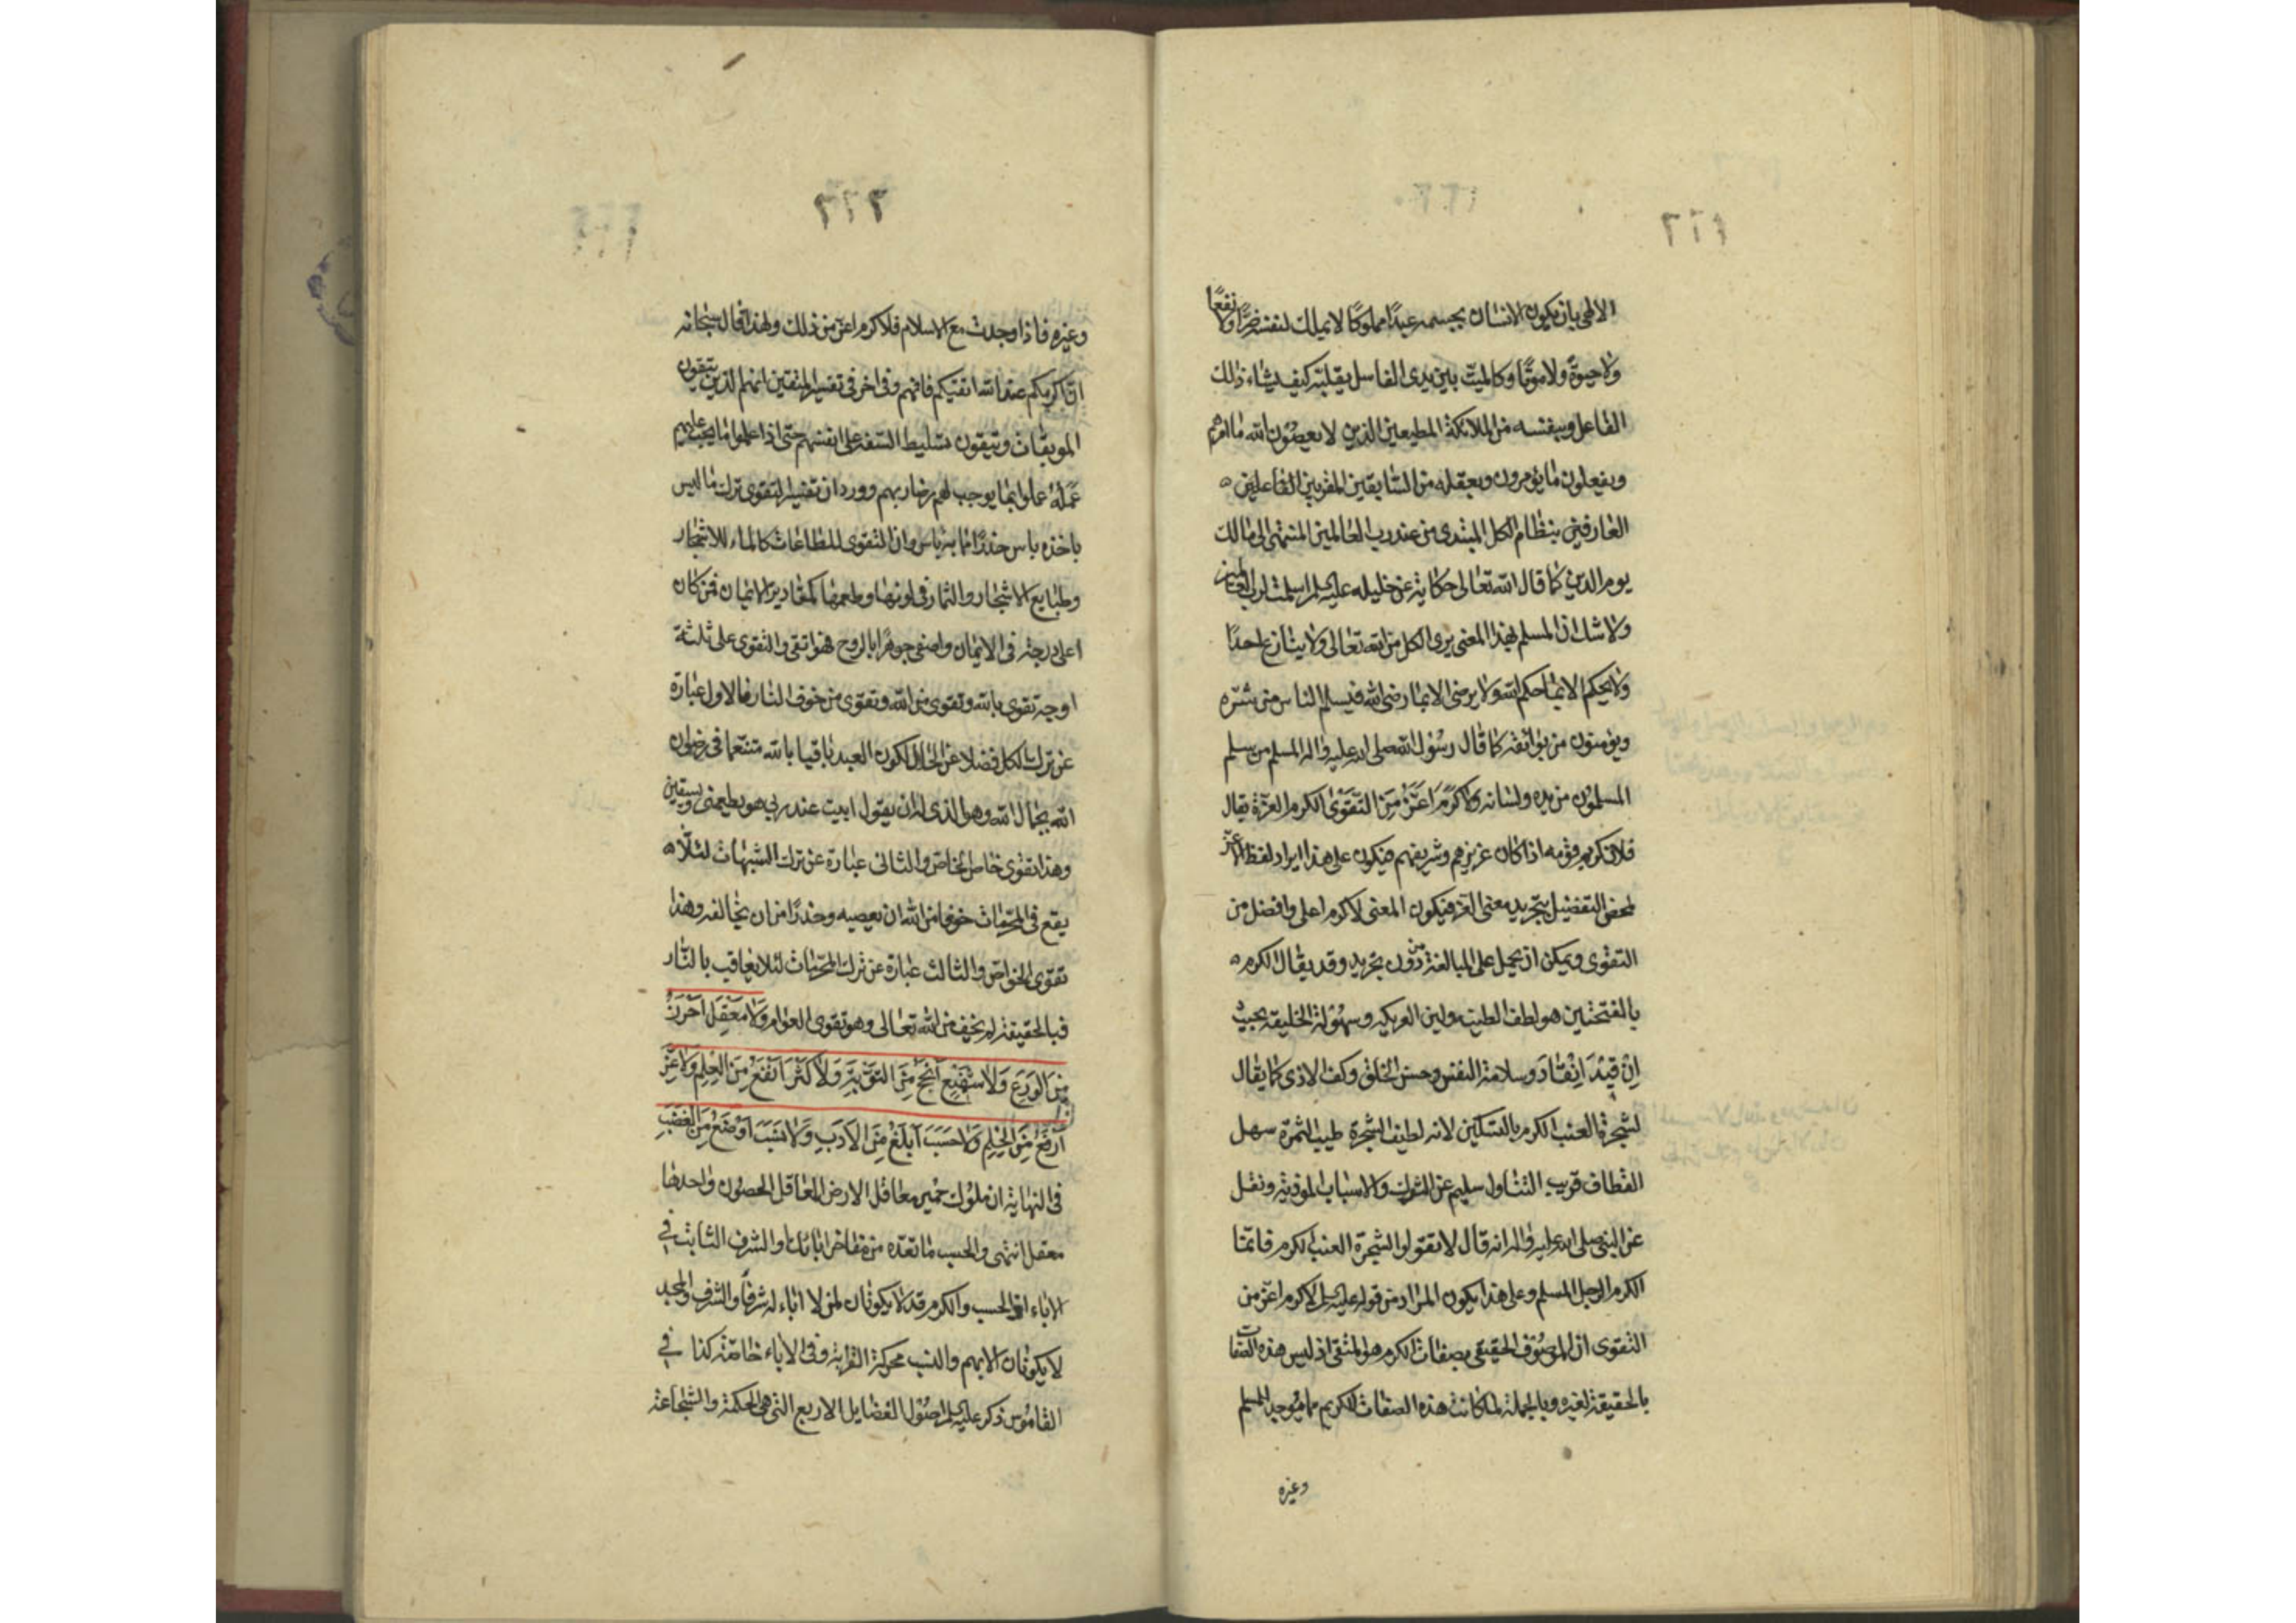 ٢٦١
الالهى بان يكون الانسان بجسمه عبدًا مملوكًا لا يملك لنفسه ضرًّا ولا نفعًا
ولا حيوة ولا موتًا وكالميت بين يدى الغاسل يقلبه كيف يشاء ذلك
الفاعل وبنفسه من الملائكة المطيعين الذين لا يعصون الله ما امرهم
ويفعلون ما يؤمرون وبعقله من السابقين المقربين الفاعلين
العارفين بنظام الكل المبتدى من عند رب العالمين المنتهى الى مالك
يوم الدين كما قال الله تعالى حكاية عن خليله عليه السلم اسلمت لرب العالمين
ولا شك ان المسلم بهذا المعنى يرى الكل من الله تعالى ولا ينازع احدًا
ولا يحكم الا بما حكم الله ولا يرضى الا بما رضى الله فيسلم الناس من شره
ويؤمنون من بوائقه كما قال رسول الله صلى الله عليه واله المسلم من سلم
المسلمون من يده ولسانه ولا كَرَمَ اَعَزُّ مِنَ التَّقْوىٰ الكرم العزة يقال
فلان كريم قومه اذا كان عزيزهم وشريفهم فيكون على هذا ايراد لفظ الاعز
لمحض التفضيل بتجريد معنى العز فيكون المعنى لا كرم اعلى وافضل من
التقوى ويمكن ان يحمل على المبالغة من دون تجريد وقد يقال الكرم
بالفتحتين هو لطف الطينة ولين العريكه وسهولة الخليقه بحيث
اِن قِيْدَ اِنْقَادَ وسلامة النفس وحسن الخلق وكف الاذى كما يقال
لشجرة العنب الكرم بالتسكين لانه لطيف الشجرة طيب الثمرة سهل
القطاف قريب التناول سليم عن الشوك والاسباب الموذية ونقل
عن النبى صلى الله عليه واله انه قال لا تقولوا لشجرة العنب الكرم فانما
الكرم الرجل المسلم وعلى هذا يكون المراد من قوله عليه السلم لا كرم اعز من
التقوى ان الموصوف الحقيقى بصفات الكرم هو المتقى اذ ليس هذه الصفات
بالحقيقة لغيره وبالجملة لما كانت هذه الصفات للكريم مما يوجد للمسلم
وغيره
٢٦٢
وغيره فاذا وجدت مع الاسلام فلا كرم اعز من ذلك ولهذا قال سبحانه
ان اكرمكم عند الله اتقيكم فافهم وفى اخر فى تفسير المتقين انهم الذين يتقون
الموبقات ويتقون تسليط السفه على انفسهم حتى اذا علموا ما يجب عليهم
عَمَلُهُ عملوا بما يوجب لهم رضا ربهم وورد ان تفسير التقوى ترك ما ليس
باخذه باس حذرًا مما به باس وان التقوى للطاعات كالماء للاشجار
وطبايع الاشجار والثمار فى لونها وطعمها كمقادير الايمان فمن كان
اعلى درجة فى الايمان واصفى جوهرًا بالروح فهو اتقى والتقوى على ثلثة
اوجه تقوى بالله وتقوى من الله وتقوى من خوف النار فالاول عبارة
عن ترك الكل فضلا عن الحلال لكون العبد باقيا بالله متنعما فى رضوان
الله بجمال الله وهو الذى له ان يقول ابيت عند ربى هو يطعمنى ويسقين
وهذا تقوى خاص الخاص والثانى عبارة عن ترك الشبهات لئلا
يقع فى المحرمات خوفا من الله ان يعصيه وحذرًا من ان يخالفه وهذا
تقوى الخواص والثالث عبارة عن ترك المحرمات لئلا يعاقب بالنار
فبالحقيقة لم يخف من الله تعالى وهو تقوى العوام وَلا مَعْقِلَ اَحْرَزُ
مِنَ الوَرَعِ وَلا شَفِيْعَ اَنْجَحُ مِنَ التَوْبَةِ وَلا كَنْزَ اَنْفَعُ مِنَ الْعِلْمِ وَلا عِزَّ
اَرْفَعُ مِنَ الحِلْمِ وَلا حَسَبَ اَبْلَغُ مِنَ الاَدَبِ وَلا نَسَبَ اَوْضَعُ مِنَ الغَضَبِ
فى النهاية ان ملوك حمير معاقل الارض المعاقل الحصون واحدها
معقل انتهى والحسب ما تعده من مفاخر ابائك او الشرف الثابت فى
الاباء او الحسب والكرم قد لا يكونان لمن لا اباء له شرفاً والشرف والمجد
لا يكونان الا بهم والنسب محركة القرابة وفى الاباء خاصة كذا فى
القاموس ذكر عليه السلم اصول الفضايل الاربع التى هى الحكمة والشجاعة